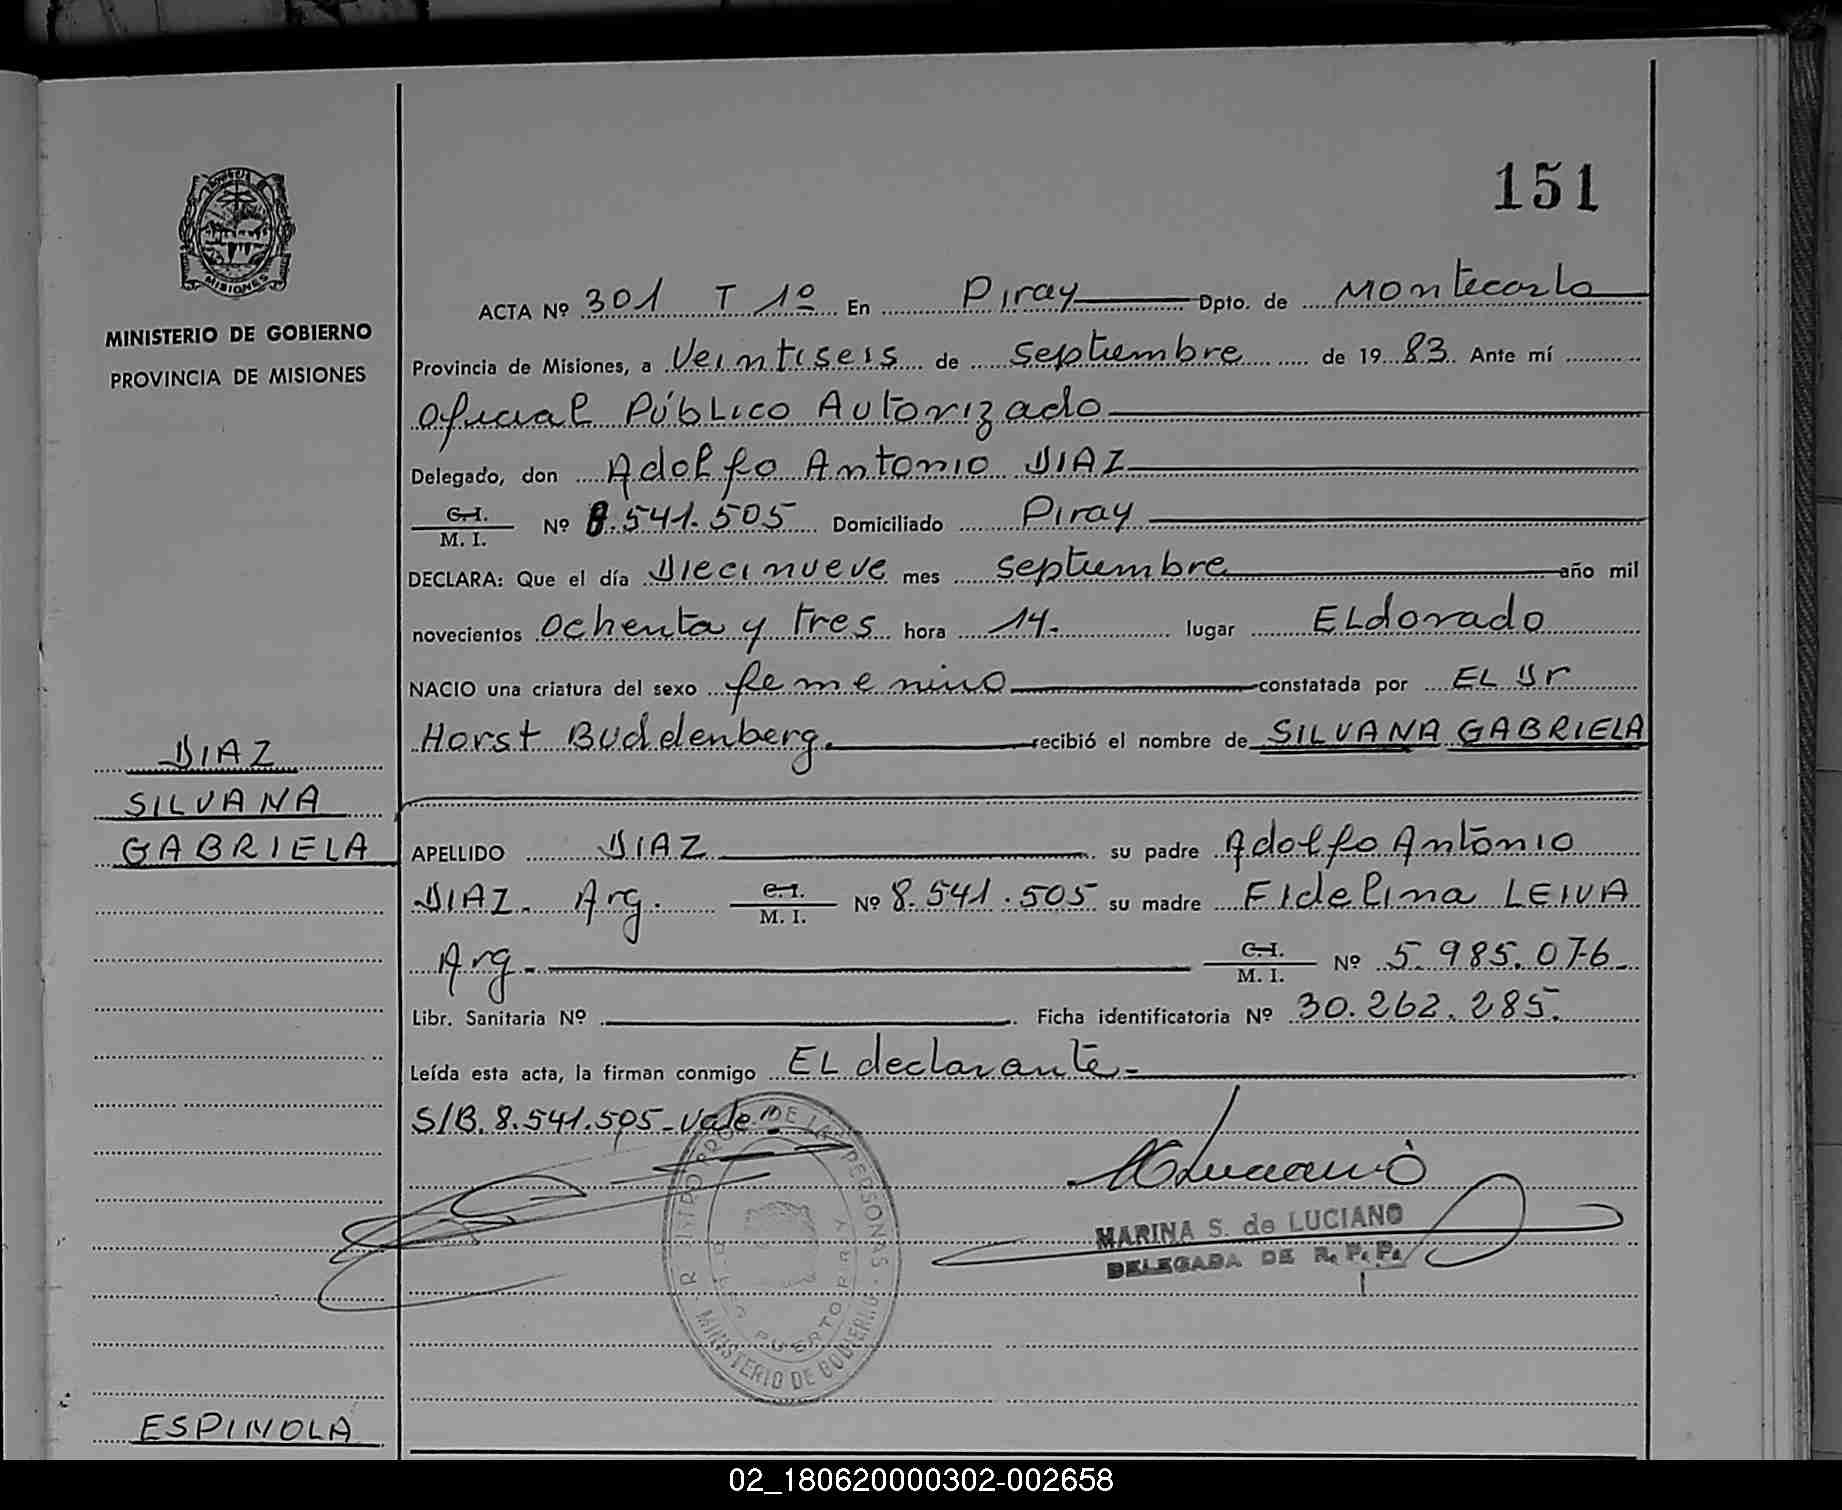 151
MISIONES
MINISTERIO DE GOBIERNO
PROVINCIA DE MISIONES
ACTA Nº 301 T 1º En Piray Dpto. de Montecarlo
Provincia de Misiones, a Veintiseis de Septiembre de 1983. Ante mí
Oficial Público Autorizado
Delegado, don Adolfo Antonio DIAZ
C.I. / M. I. Nº 8.541.505 Domiciliado Piray
DECLARA: Que el día Diecinueve mes septiembre año mil
novecientos ochenta y tres hora 14. lugar ELdorado
NACIO una criatura del sexo femenino constatada por EL Dr
Horst Buddenberg. recibió el nombre de SILVANA GABRIELA
DIAZ
SILVANA
GABRIELA
APELLIDO DIAZ su padre Adolfo Antonio
DIAZ. Arg. C.I. / M. I. Nº 8.541.505 su madre FIdelina LEIVA
Arg. C.I. / M. I. Nº 5.985.076
Libr. Sanitaria Nº Ficha identificatoria Nº 30.262.285.
Leída esta acta, la firman conmigo EL declarante.
S/B. 8.541.505 - vale
MARINA S. de LUCIANO
DELEGADA DE R. P. P.
MINISTERIO DE GOBIERNO
PUERTO PIRAY
ESPINOLA
02_180620000302-002658